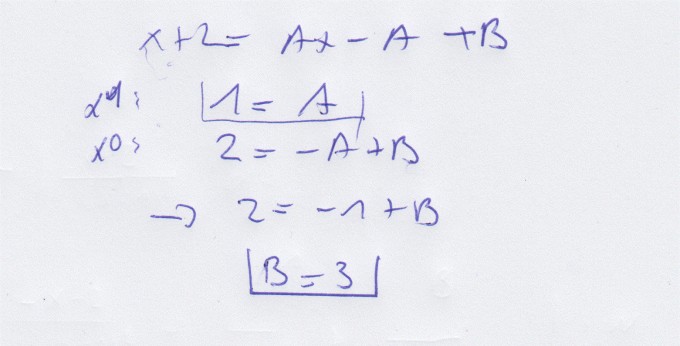 x+2= Ax - A +B
x^1: 1 = A
x^0: 2 = -A+B
→ 2 = -1+B
B = 3